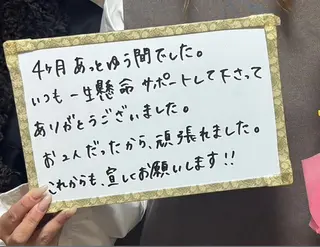 4ヶ月 あっとゆう間でした。
いつも 一生懸命 サポートして下さって
ありがとうございました。
お2人だったから、頑張れました。
これからも、宜しくお願いします!!